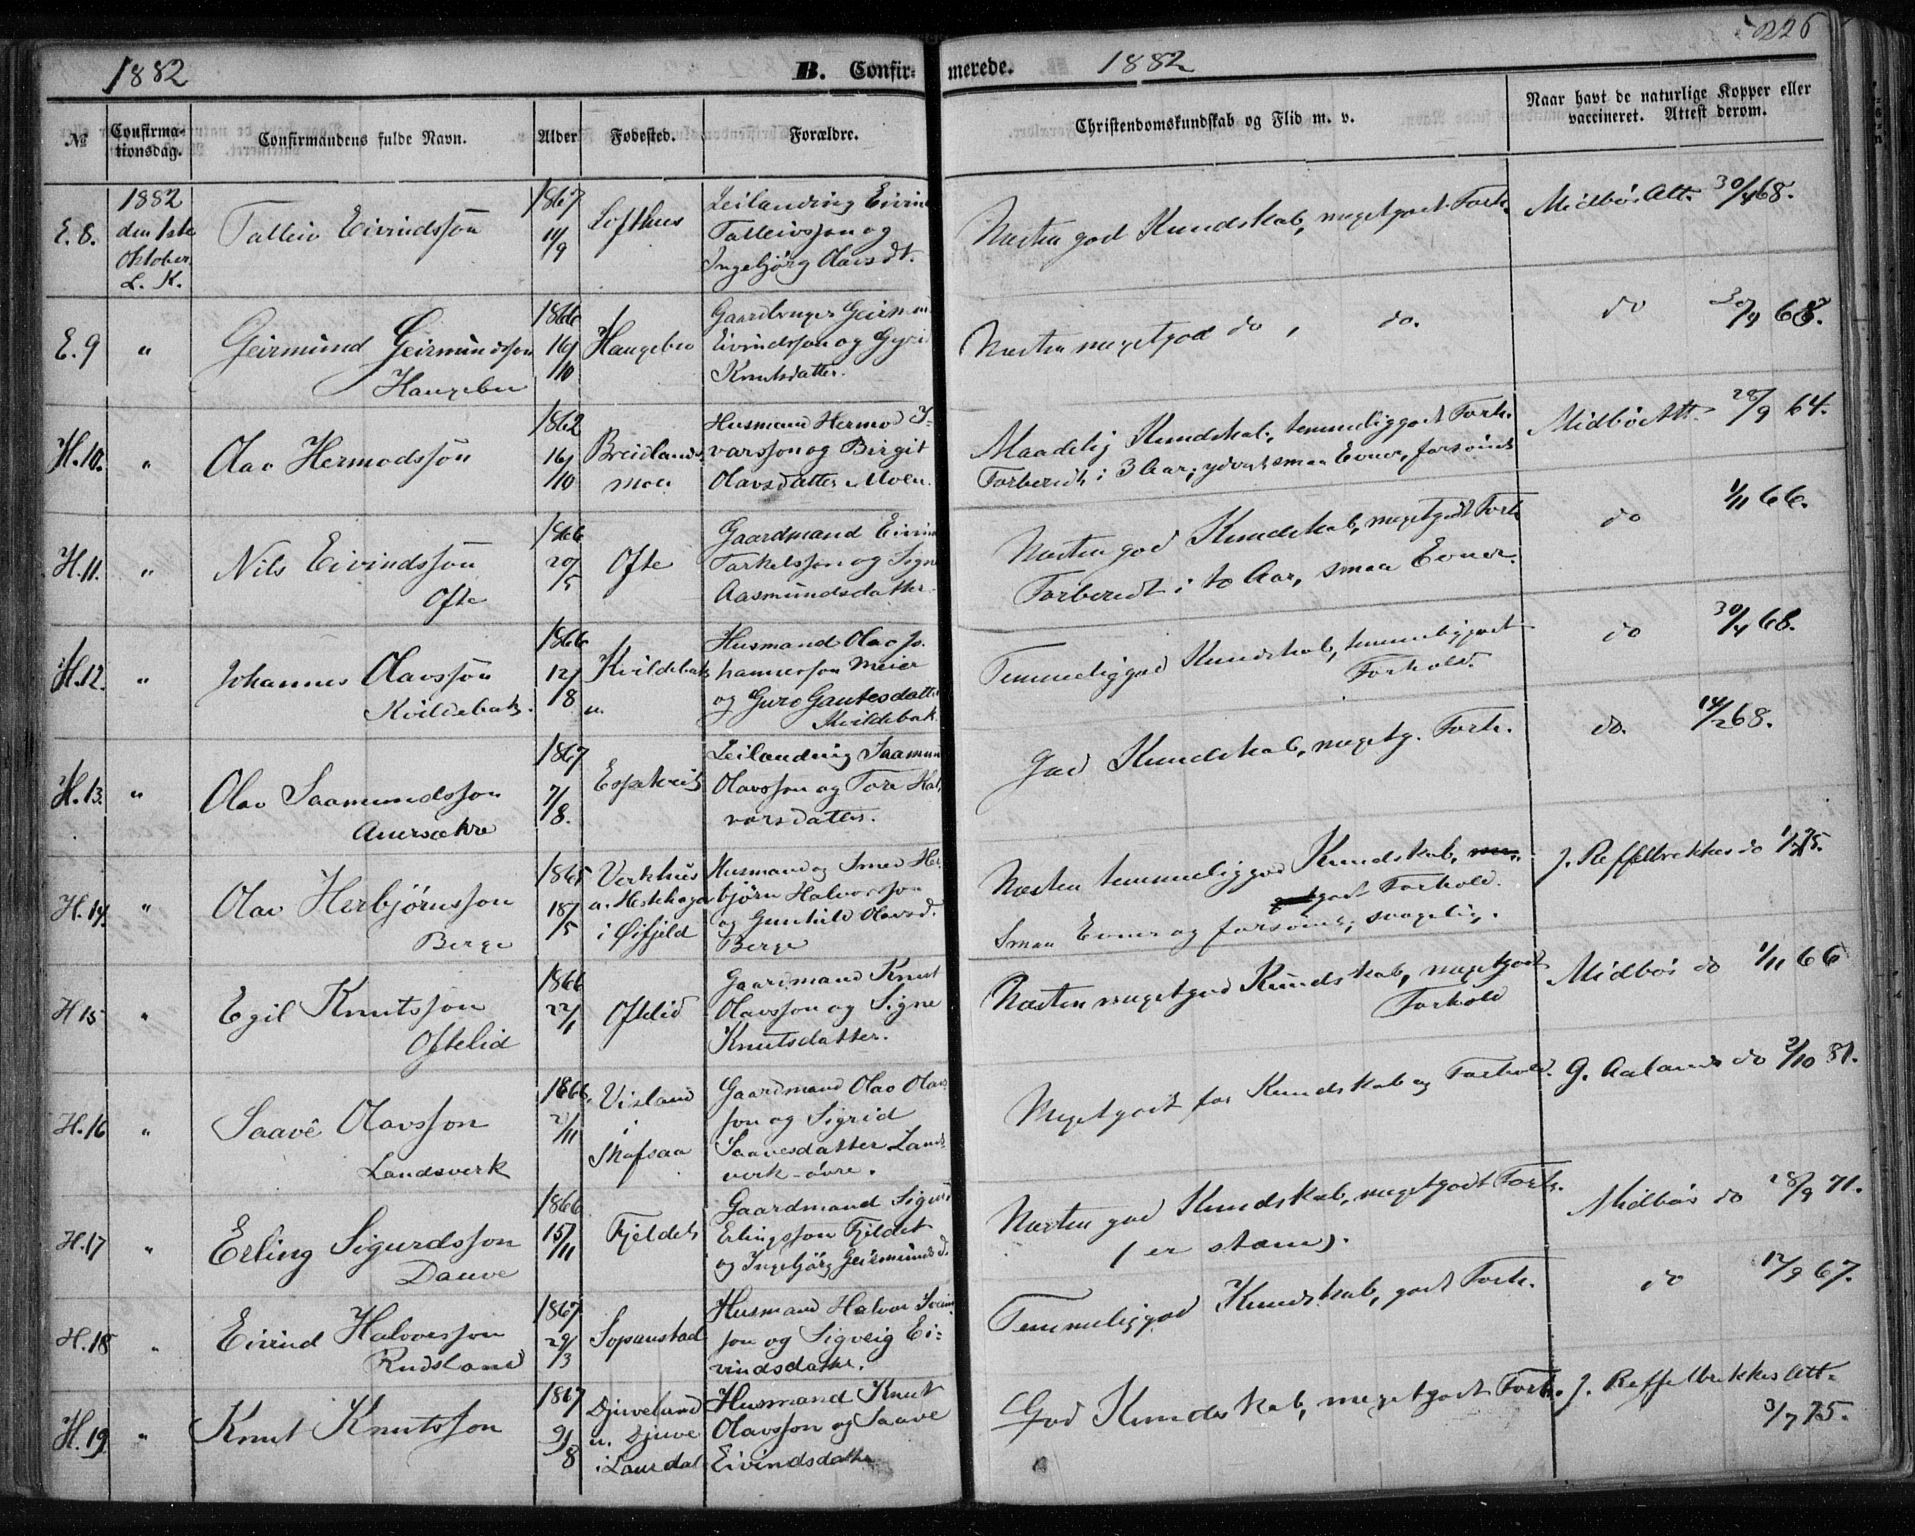 1882
B. Confir-
merede.
1882
226
№
Confirma-
tionsdag.
Confirmandens fulde Navn.
Alder
Fødested.
Forældre.
Christendomskundskab og Flid m. v.
Naar havt de naturlige Kopper eller
vaccineret. Attest derom.
E. 8.
1882
den 1ste
Oktober.
L. K.
Talleiv Eivindssön
1867
14/9
Lofthus
Leilænding Eivin
Talleivsson og
Ingebjörg Olavsdt.
Næsten god Kundskab, megetgodt Forh.
Midbös Att. 30/4 68.
E. 9
"
Geirmund Geirmundsson
Haugebu
1866
16/10
Haugebu
Gaardbruger Geirm
Eivindsson og Gyri
Knutsdatter.
Næsten megetgod do, do.
do 30/9 68.
H. 10.
"
Olav Hermodssön
1862
16/10
Breidlands
moen
Husmand Hermod I-
varsson og Birgit
Olavsdatter Moen.
Maadelig Kundskab, temmeliggodt Forh.
Forberedt i 3 Aar; yderst smaa Evner, forsömt
Midbös Att. 28/9 64.
H. 11.
"
Nils Eivindssön
Ofte
1866
20/5
Ofte
Gaardmand Eivin
Tarkelsson og Signe
Aasmundsdatter.
Næsten god Kundskab, megetgodt Forh.
Forberedt i to Aar, smaa Evner.
do 1/11 66.
H. 12.
"
Johannes Olavssön
Kvildebak.
1866
12/8
Kvildebak
u.
Husmand Olav Jo-
hannesson Meier
og Guro Gautesdatter
Kvildebak
Temmeliggod Kundskab, temmeliggodt
Forhold.
do 30/4 68.
H. 13.
"
Olav Saamundsson
1867
7/8.
Leilænding Saamun
Olavsson og Tore Hal
vorsdatter.
God Kundskab, megetg. Forh.
do. 14/2 68.
H. 14.
"
Olav Herbjörnsson
Berge
1865
18/5
Verkhus
i Øifjeld
Husmand og Smed Her
björn Halvorsson
og Gunhild Olavsd.
Berge
Næsten temmeliggod Kundskab,
godt Forhold.
Smaa Evner og forsömt, svagelig.
J. Reffelbrekkes do
H 15
"
Egil Knutsson
Oftelid
1866
22/1
Oftelid
Gaardmand Knut
Olavsson og Signe
Knutsdatter.
Næsten megetgod Kundskab, megetgodt
Forhold
Midbös do 1/11 66
H. 16
"
Saave Olavsson
Landsverk
1866
2/11
Vinland
i
Skafsaa
Gaardmand Olav Olavs
son og Sigrid
Saavesdatter Lands
verk-övre.
Megetgodt for Kundskab og Forhold.
G. Aalands do 2/10 81.
H. 17
"
Erling Sigurdsson
Dauve
1866
15/11
Fjeldet
Gaardmand Sigurd
Erlingsson Fjeldet
og Ingebjörg Geirmundsd.
Næsten god Kundskab, megetgodt Forh.
(er stam).
Midbös do 28/9 71.
H. 18
"
Eivind Halvorsson
Rudsland
1867
29/3
Sopanstad
Husmand Halvor Svein
son og Sigveig Ei-
vindsdatter.
Temmeliggod Kundskab, godt Forh.
do 12/9 67.
H. 19
"
Knut Knutsson
1867
9/8
Djuveland
u. Djuve
i Laurdal
Husmand Knut
Olavsson og Saave
Eivindsdatter
God Kundskab, megetgodt Forh.
J. Reffelbrekkes Att.
3/7 75.